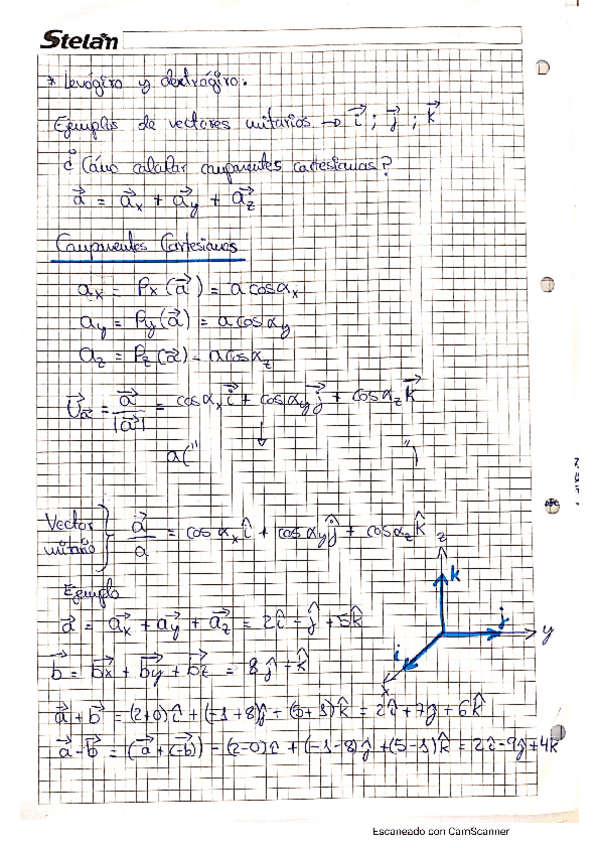 Stelan
* Levógiro y dextrógiro.
Ejemplos de vectores unitarios → i⃗ ; j⃗ ; k⃗
¿Cómo calcular componentes cartesianas?
a⃗ = a⃗x + a⃗y + a⃗z
Componentes Cartesianas
ax = Px(a⃗) = a cosαx
ay = Py(a⃗) = a cosαy
az = Pz(a⃗) = a cosαz
U⃗a⃗ = a⃗/|a⃗| = cosαx i⃗ + cosαy j⃗ + cosαz k⃗
↓
a(" ")
Vector unitario } a⃗/a = cos αx î + cosαy ĵ + cosαz k̂
z
k
Ejemplo
a⃗ = a⃗x + a⃗y + a⃗z = 2î - ĵ + 5k̂
j
y
i
b⃗ = b⃗x + b⃗y + b⃗z = 8ĵ + k̂
x
a⃗ + b⃗ = (2+0)î + (-1+8)ĵ + (5+1)k̂ = 2î + 7ĵ + 6k̂
a⃗ - b⃗ = (a⃗ + (-b⃗)) = (2-0)î + (-1-8)ĵ + (5-1)k̂ = 2î - 9ĵ + 4k̂
Escaneado con CamScanner